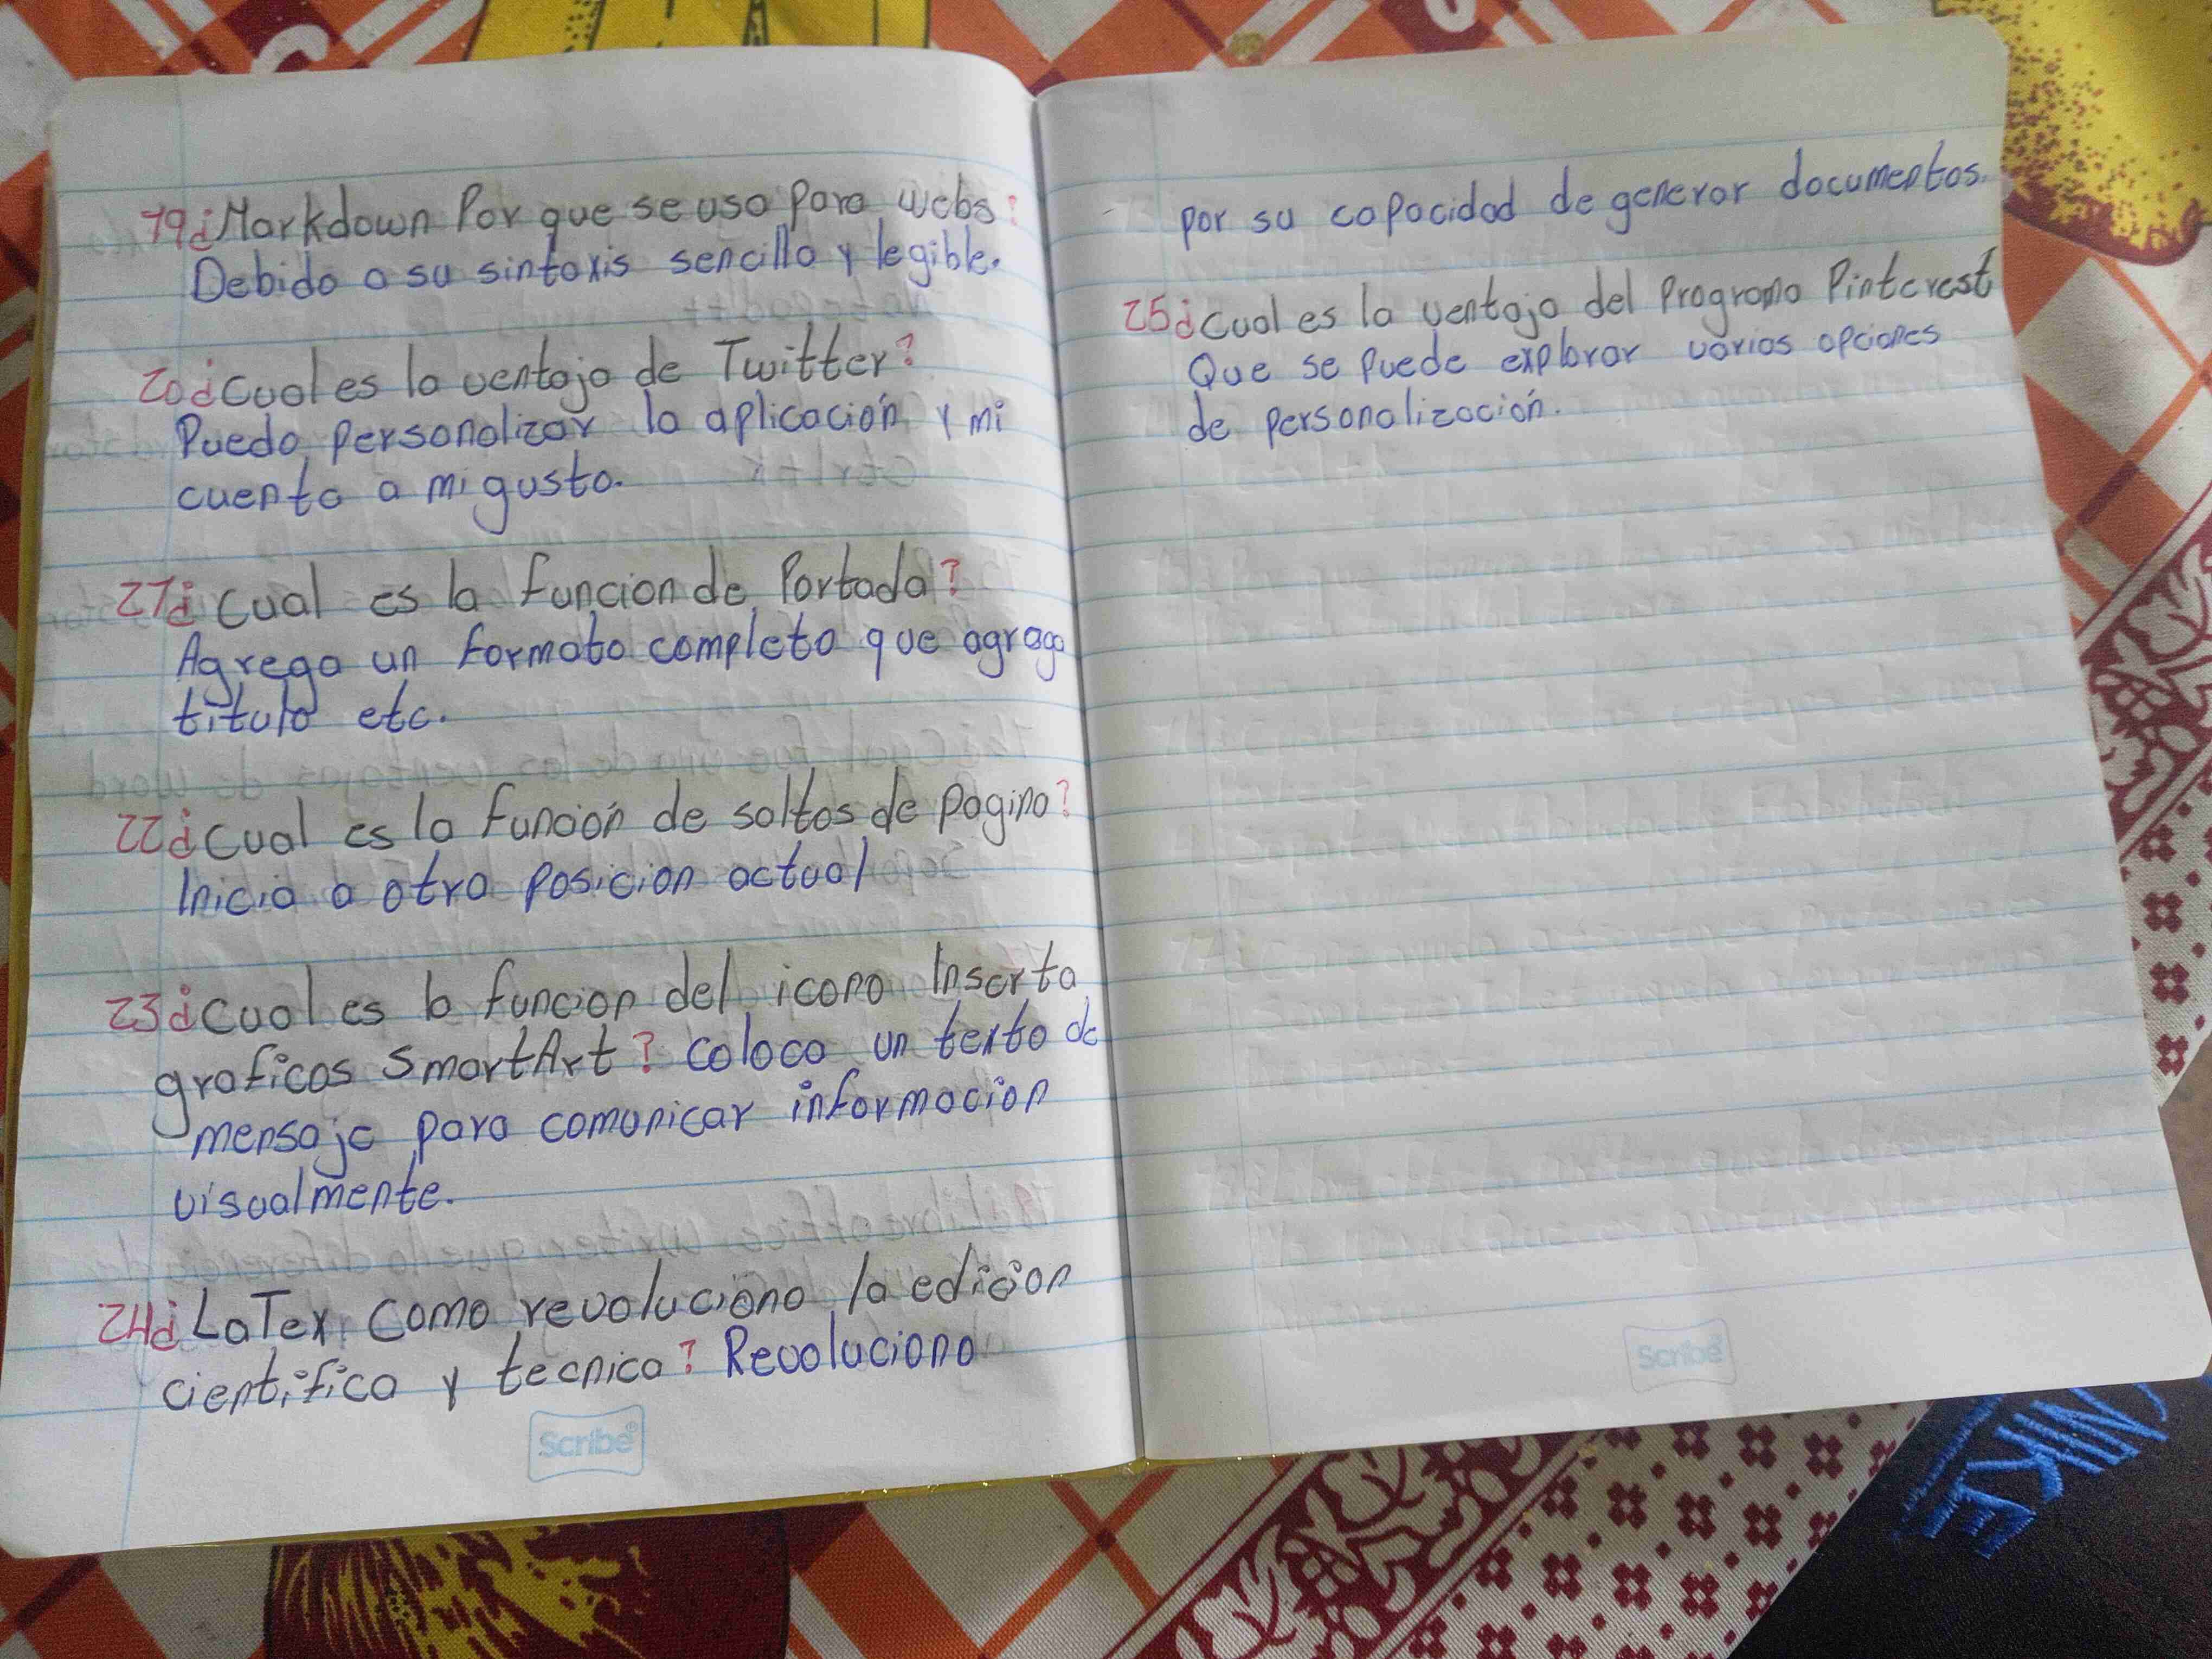 19¿Markdown Por que se usa para webs?
Debido a su sintaxis sencilla y legible.
20¿Cual es la ventaja de Twitter?
Puedo personalizar la aplicación y mi
cuenta a mi gusto.
21¿Cual es la funcion de Portada?
Agrega un formato completo que agraga
titulo etc.
22¿Cual es la función de saltos de pagina?
Inicia a otra posicion actual
23¿Cual es la funcion del icono Inserta
graficos SmartArt? Coloca un texto de
mensaje para comunicar informacion
visualmente.
24¿LaTex como revoluciono la edicion
cientifica y tecnica? Revoluciono
Scribe
por su capacidad de generar documentos.
25¿Cual es la ventaja del Programa Pinterest
Que se puede explorar varias opciones
de personalización.
Scribe
NIKE